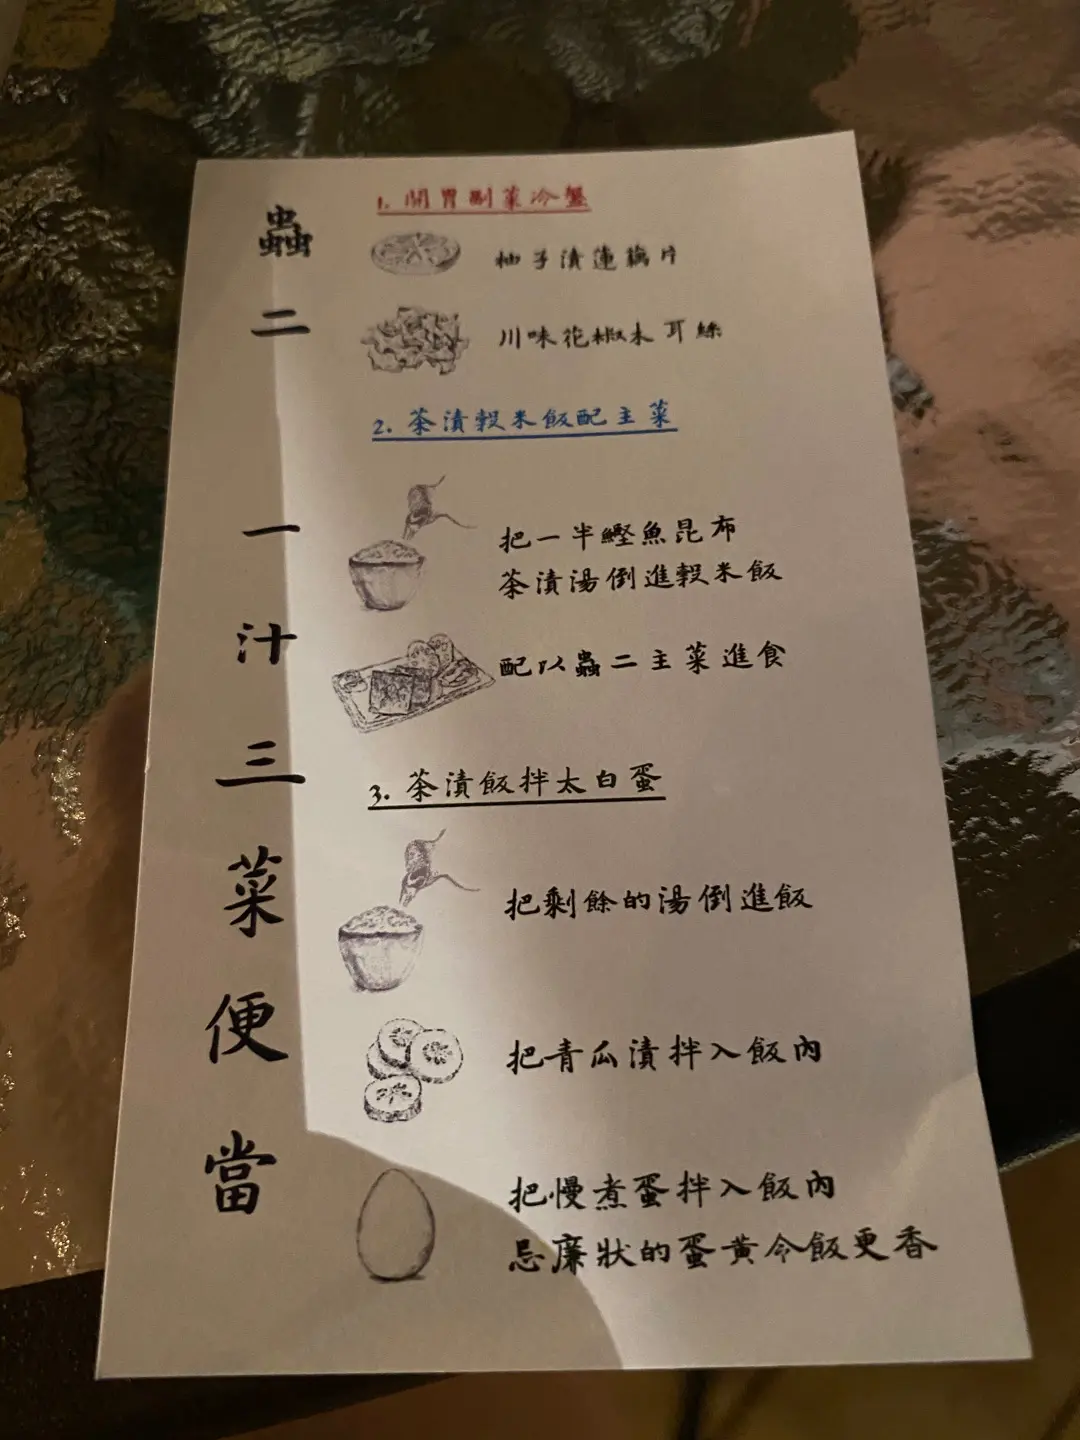 蟲二 一汁三菜便當
1. 開胃副菜冷盤
柚子漬蓮藕片
川味花椒木耳絲
2. 茶漬穀米飯配主菜
把一半鰹魚昆布
茶漬湯倒進穀米飯
配以蟲二主菜進食
3. 茶漬飯拌太白蛋
把剩餘的湯倒進飯
把青瓜漬拌入飯內
把慢煮蛋拌入飯內
忌廉狀的蛋黃令飯更香